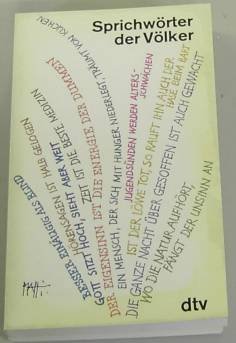 Sprichwörter
der Völker
BESSER EINÄUGIG ALS BLIND
HÖRENSAGEN IST HALB GELOGEN
GOTT SITZT HOCH, SIEHT ABER WEIT
ZEIT IST DIE BESTE MEDIZIN
DER EIGENSINN IST DIE ENERGIE DER DUMMEN
EIN MENSCH, DER SICH MIT HUNGER NIEDERLEGT, TRÄUMT VON KUCHEN
JUGENDSÜNDEN WERDEN ALTERS-
SCHWÄCHEN
IST DER LÖWE TOT, SO RAUFT IHN AUCH DER
HASE BEIM BART
DIE GANZE NACHT ÜBER GESOFFEN IST AUCH GEWACHT
WO DIE NATUR AUFHÖRT,
FÄNGT DER UNSINN AN
dtv